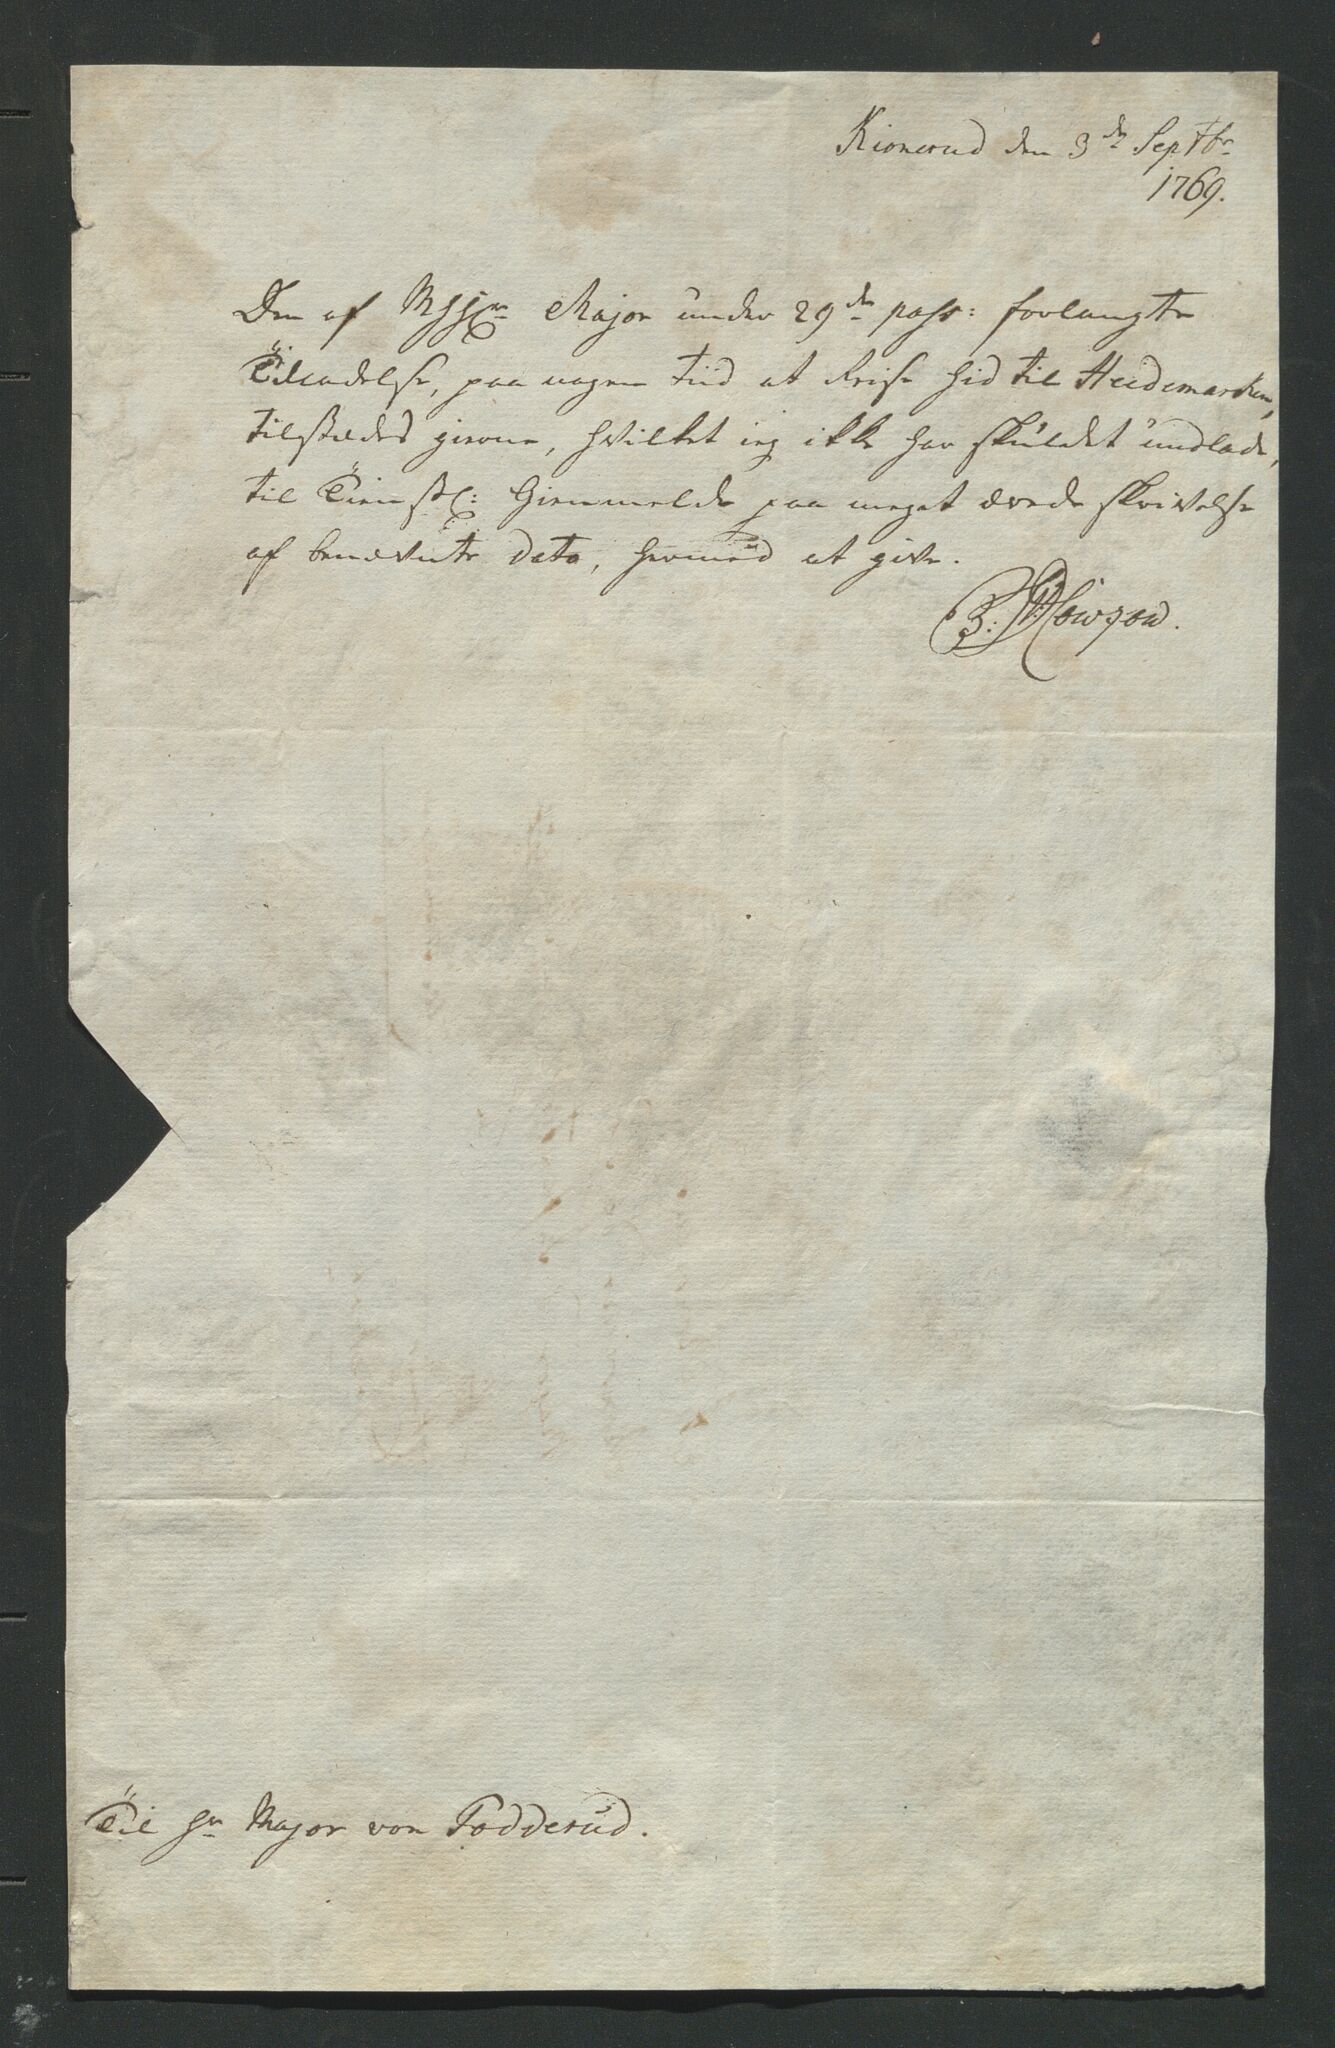 Kionerud den 3de Septbr
1769.
Den af Hr Major under 29de pass: forlangte
Tilladelse, paa nogen tiid at Reise hid til Hedemarken,
tilstædes gierne, hvilket ieg ikke har skuldet undlade,
til Tienstl: Giennmelde paa meget ærede skrivelse
af benævnte dato, hermed at give.
Til Hr Major von Todderud.